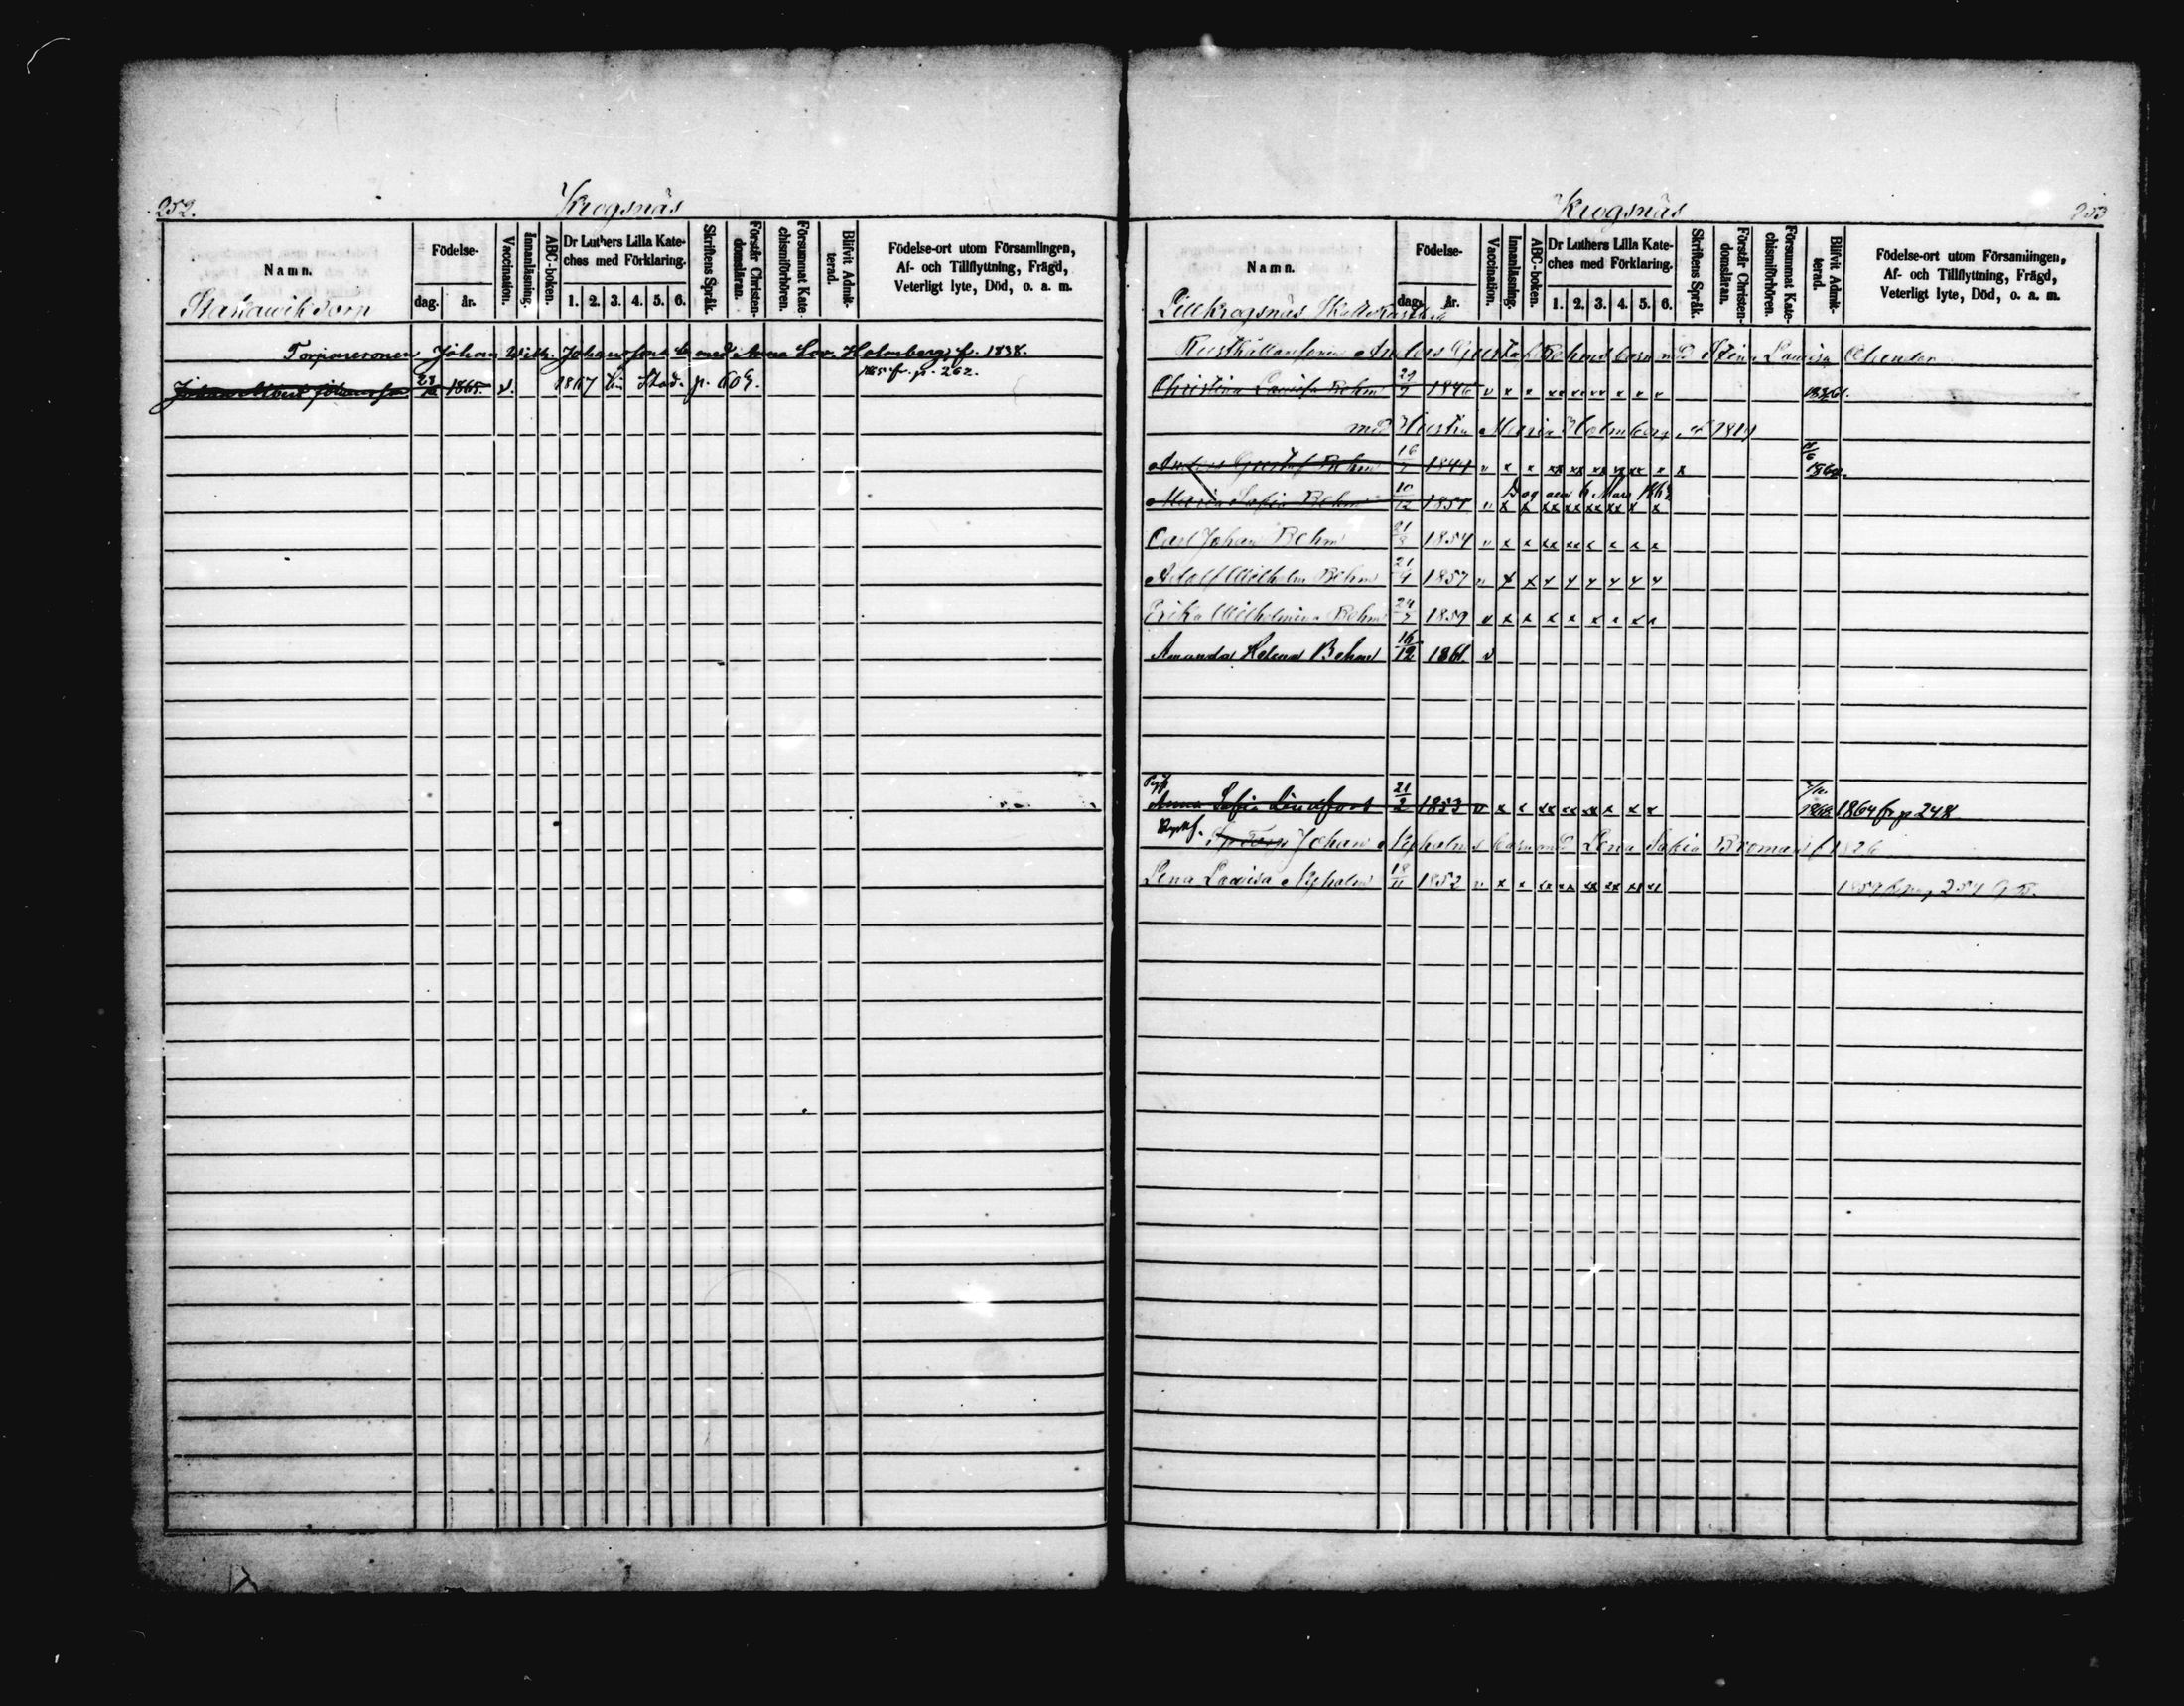 252.
Krogsnäs
Namn.
Födelse-
dag.
år.
Vaccination.
Innanläsning.
ABC-boken.
Dr Luthers Lilla Kate-
ches med Förklaring.
1. 2. 3. 4. 5. 6.
Skriftens Språk.
Förstår Christen-
domsläran.
Försummat Kate
chismiförhören.
Blifvit Admit-
terad.
Födelse-ort utom Församlingen,
Af- och Tillflyttning, Frägd,
Veterligt lyte, Död, o. a. m.
Johan Wilh. Johanssons b. med Anna Lov. Holmberg, f. 1838.
1865 fr. p. 262.
Johan Albert Johansson 1865. v. 1867 till Stad. p. 609.
Krogsnäs
253
Namn.
Födelse-
dag.
År.
Vaccination.
Innanläsning.
ABC-boken.
Dr Luthers Lilla Kate-
ches med Förklaring.
1. 2. 3. 4. 5. 6.
Skriftens Språk.
Förstår Christen-
domsläran.
Försummat Kate-
chismiförhören.
Blifvit Admit-
terad.
Födelse-ort utom Församlingen,
Af- och Tillflyttning, Frägd,
Veterligt lyte, Död, o. a. m.
Lillkrogsnäs
Anders Gustaf Behms barn med Stina Lovisa
Christina Lovisa Behm 1846 v x x xx xx xx x x v
med Maria Holmberg f 1819
Anders Gustaf Behm 16 1844 v x x xx xx xx xx xx x x
Dog den 6 Mars 1862
Maria Sofia Behm 10/12 1851 v x x xx xx xx xx x x
Carl Johan Behm 21/8 1854 v x x xx xx x x x x
Adolf Wilhelm Behm 21/4 1857 v x x x x x x x x
Erika Wilhelmina Behm 24/7 1859 v x x x x x x x x
Amanda Helena Behm 16/12 1861. v
Anna Sofia Lindfors 21/2 1853 v x x xx xx xx x x x 1868 1864 fr p 248
Johan Nyholms barn med Lena Sofia Broman f 1826
Lena Lovisa Nyholm 18/11 1852 v x x xx xx xx xx xx xx